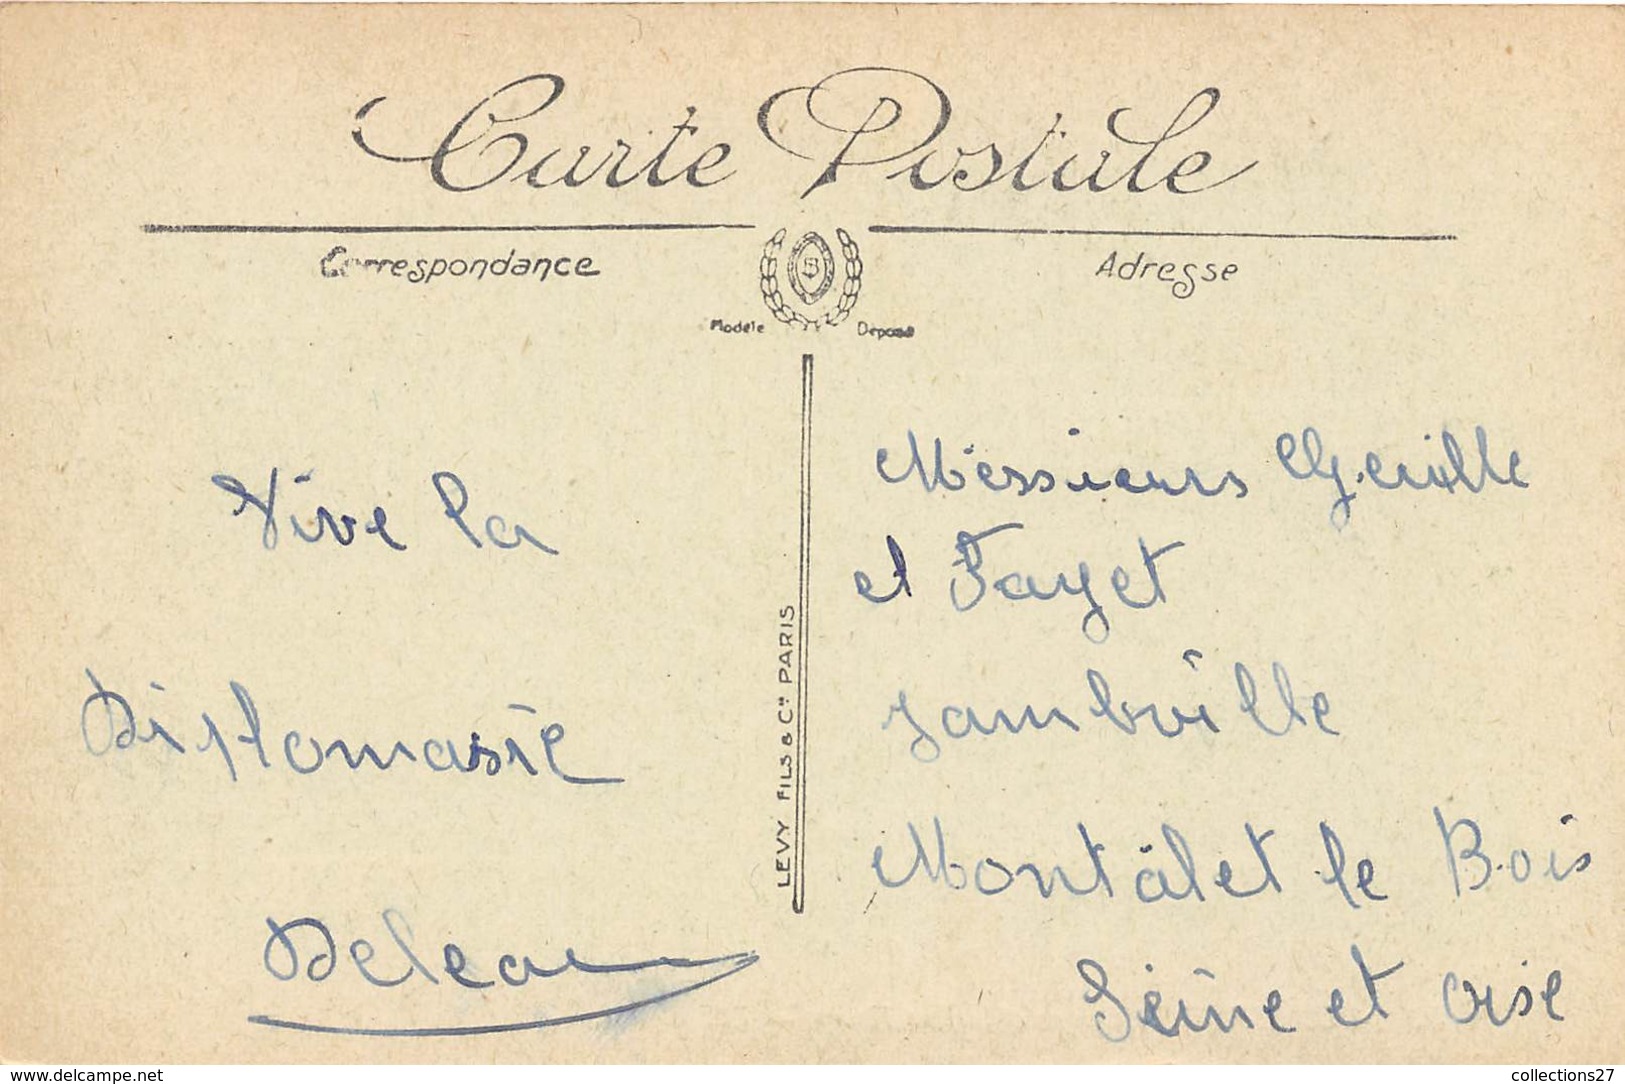 Carte Postale
Correspondance
Adresse
Modèle Déposé
Vive la
Diplomasie
Deleau
LEVY FILS & Cie PARIS
Messieurs
et Fayet
Jambville
Montâlet le Bois
Seine et Oise
www.delcampe.net
collections27